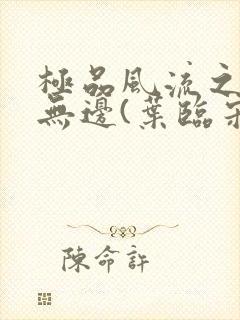 極品風流之
無邊(葉臨
陳命許